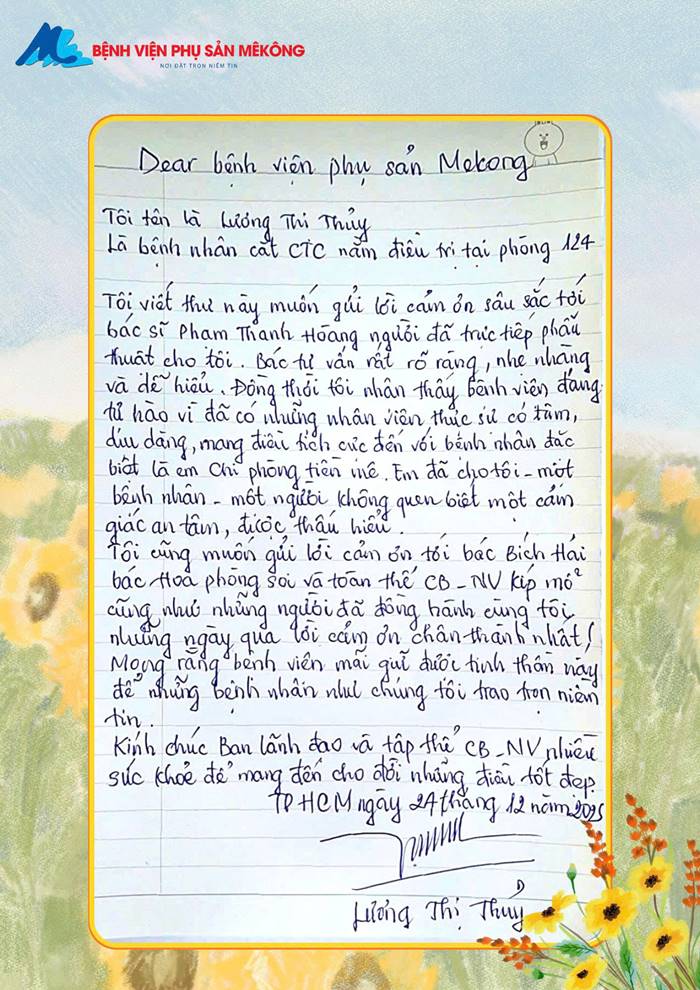 BỆNH VIỆN PHỤ SẢN MÊKÔNG
NƠI ĐẶT TRỌN NIỀM TIN
Dear bệnh viện phụ sản Mekong
Tôi tên là Lương Thị Thủy
Là bệnh nhân cắt CTC nằm điều trị tại phòng 124
Tôi viết thư này muốn gửi lời cảm ơn sâu sắc tới
bác sĩ Phạm Thanh Hoàng người đã trực tiếp phẫu
thuật cho tôi. Bác tư vấn rất rõ ràng, nhẹ nhàng
và dễ hiểu. Đồng thời tôi nhận thấy bệnh viện đáng
tự hào vì đã có những nhân viên thực sự có tâm,
dịu dàng, mang điều tích cực đến với bệnh nhân đặc
biệt là em Chi phòng tiền mê. Em đã cho tôi - một
bệnh nhân - một người không quen biết một cảm
giác an tâm, được thấu hiểu.
Tôi cũng muốn gửi lời cảm ơn tới bác Bích Hải
bác Hoa phòng soi và toàn thể CB-NV kíp mổ
cũng như những người đã đồng hành cùng tôi
những ngày qua lời cảm ơn chân thành nhất!
Mong rằng bệnh viện mãi giữ được tinh thần này
để những bệnh nhân như chúng tôi trao trọn niềm
tin.
Kính chúc Ban lãnh đạo và tập thể CB-NV nhiều
sức khoẻ để mang đến cho đời những điều tốt đẹp.
TP HCM ngày 24 tháng 12 năm 2025
Lương Thị Thuỷ